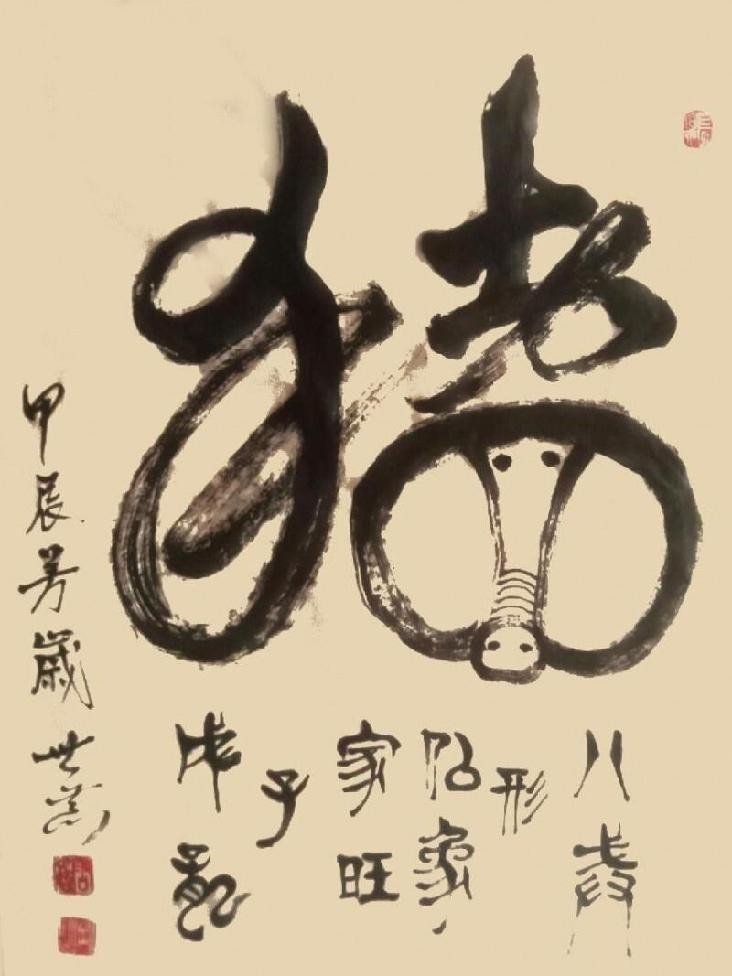 猪
八
形
似象
家旺
子
成龍
甲辰芳歲世